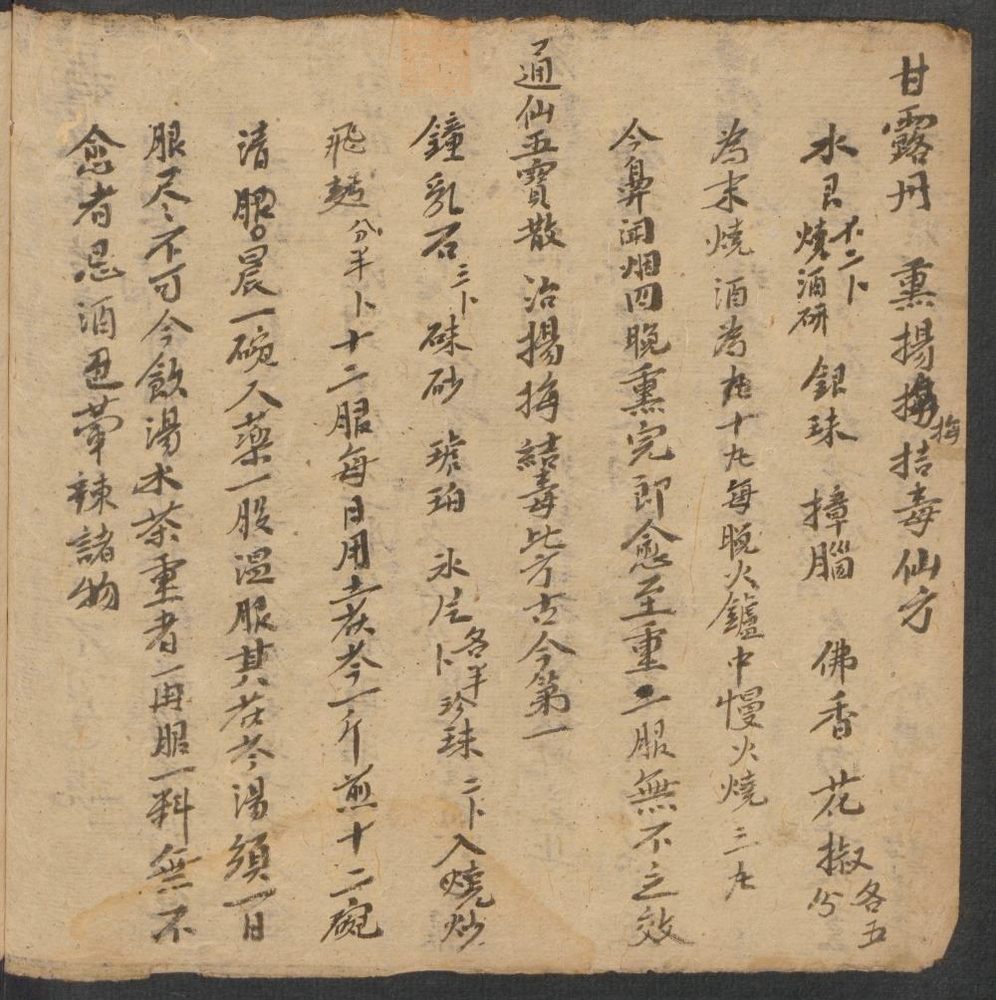 甘露丹 熏揚梅拮毒仙方
水艮不二卜燒酒研 銀珠 撞腦 佛香 花椒各五分
為末燒酒為丸十九每晚火鑪中慢火燒三丸
今鼻聞烟四晚熏完即愈至重二服無不之效
通仙五寶散 治揚梅結毒此方古今第一
鐘乳石三卜 硃砂 琥珀 氷片各半卜珍珠二卜入燒炒
飛麪分半卜十二服每日用土茯苓一斤煎十二碗
清服晨一碗入藥一服溫服其茯苓湯須一日
服尽不可今飲湯水茶重者一再服一料無不
愈者忌酒色葷辣諸物